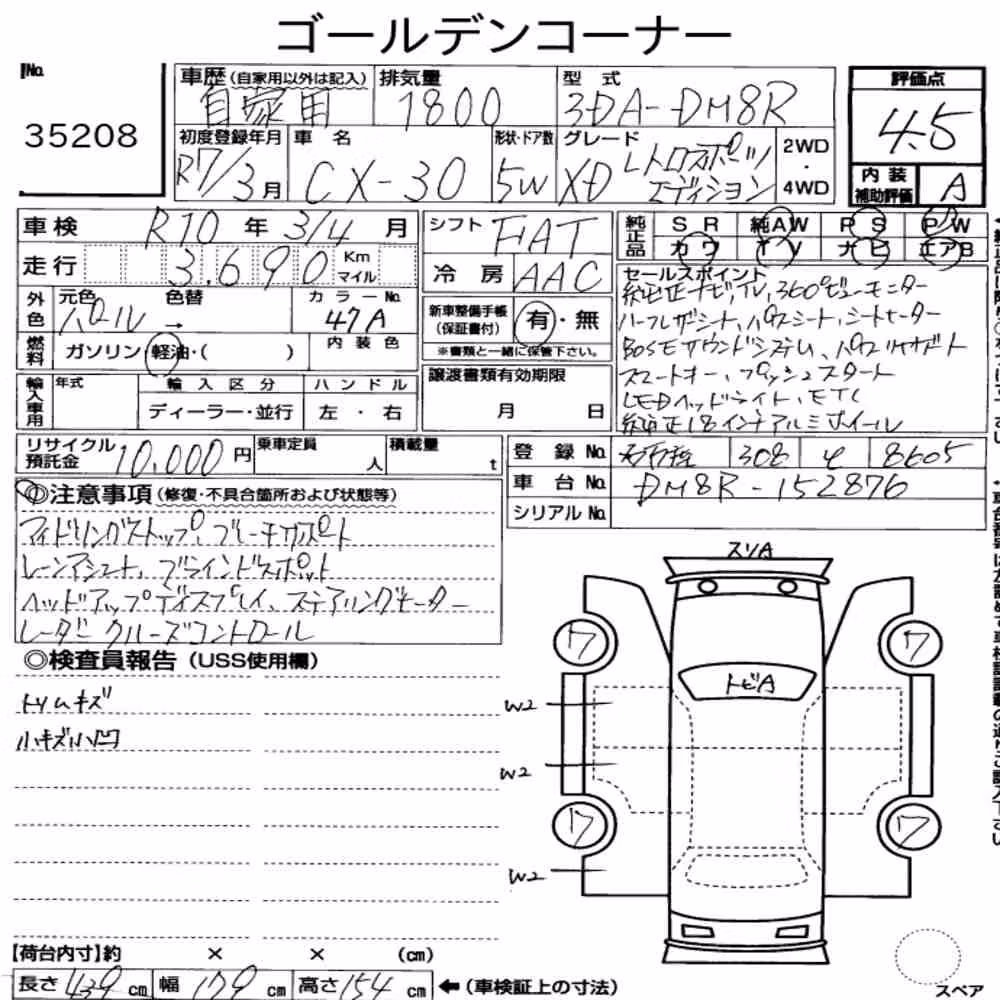 ゴールデンコーナー
No.
35208
車歴(自家用以外は記入) 排気量 型式
自家用 1800 3DA-DM8R
初度登録年月 車名 形状・ドア数 グレード 2WD・4WD
R7/3月 CX-30 5W XD レトロスポーツ
エディション
評価点
4.5
内装
補助評価 A
車検 R10年 3/4月
走行 3,690 Km マイル
外色 元色 色替 カラーNo.
パール → 47A
燃料 ガソリン・軽油・( ) 内装色
輸入車用 年式 輸入区分 ハンドル
ディーラー・並行 左・右
シフト FAT
冷房 AAC
新車整備手帳
(保証書付) 有・無
※書類と一緒に保管下さい。
譲渡書類有効期限
月 日
純正品 SR 純AW PS PW
カワ TV ナビ エアB
セールスポイント
純正ナビ,TV,360°ビューモニター
ハーフレザーシート、パワーシート、シートヒーター
BOSEサウンドシステム、パワーリヤゲート
スマートキー、プッシュスタート
LEDヘッドライト、ETC
純正18インチアルミホイール
リサイクル
預託金 10,000円 乗車定員 人 積載量 t
登録No. 308 8605
車台No. DM8R-152876
シリアルNo.
◎注意事項(修復・不具合箇所および状態等)
アイドリングストップ、ブレーキサポート
レーンアシスト、ブラインドスポット
ヘッドアップディスプレイ、ステアリングヒーター
レーダークルーズコントロール
◎検査員報告(USS使用欄)
トリムキズ
小キズ小凹
スリA
ワ ワ
トビA
W2
W2
ワ ワ
W2
【荷台内寸】約 × × (cm)
長さ 439cm 幅 179cm 高さ 154cm ←(車検証上の寸法)
スペア